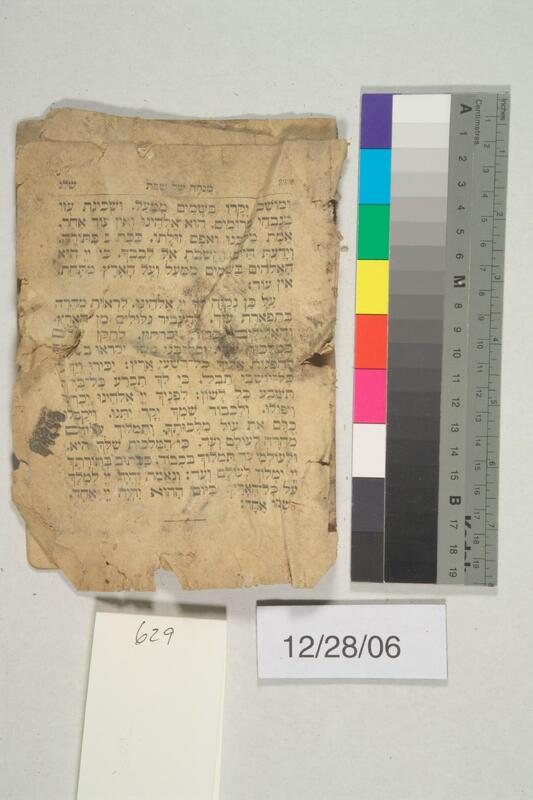 מנחה של שבת
ומושב יקרו בשמים ממעל ושכינת עזו
בגבהי מרומים. הוא אלהינו ואין עוד אחר.
אמת מלכנו ואפס זולתו. ככת׳ בתורתו
וידעת היום והשבת אל לבבך. כי יי הוא
האלהים בשמים ממעל ועל הארץ מתחת.
אין עוד:
על כן נקוה לך יי אלהינו לראות מהרה
בתפארת עזך. להעביר גלולים מן הארץ
והאלילים יכרתון. לתקן
במלכות בשר יקראו
להפנות אליך כל רשעי ארץ. יכירו
כל יושבי תבל. כי לך תכרע כל ברך
תשבע כל לשון: לפניך יי אלהינו יכרעו
ויפולו. ולכבוד שמך יקר יתנו. ויקבלו
כלם את עול מלכותך. ותמלוך עליהם
מהרה לעולם ועד. כי המלכות שלך היא.
ולעולמי עד תמלוך בכבוד. ככתוב בתורתך
יי ימלוך לעולם ועד: ונאמר והיה יי למלך
על כל הארץ. ביום ההוא יהיה יי אחד.
ושמו אחד:
Inches
Centimetres
1 2 3 4 5 6 7
A 1 2 3 4 5 6 M 8 9 10 11 12 13 14 15 B 17 18 19
629
12/28/06